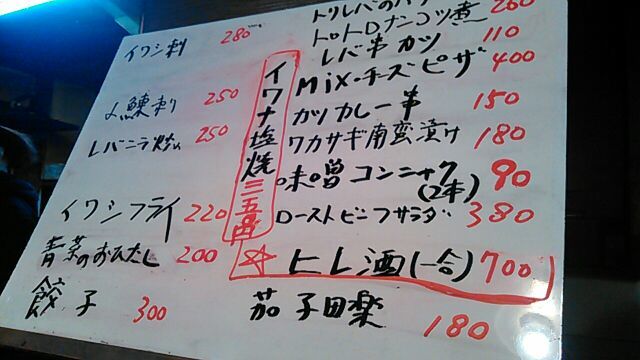 イワシ刺 280
〆鰊刺り 250
レバニラ炒め 250
イワシフライ 220
青菜のおひたし 200
餃子 300
イワナ塩焼 三五〇円
260
トロトロナンコツ煮
レバ串カツ 110
MiX・チーズピザ 400
カツカレー串 150
ワカサギ南蛮漬け 180
味噌コンニャク(2本) 90
ローストビーフサラダ 380
☆ ヒレ酒(一合) 700
茄子田楽 180